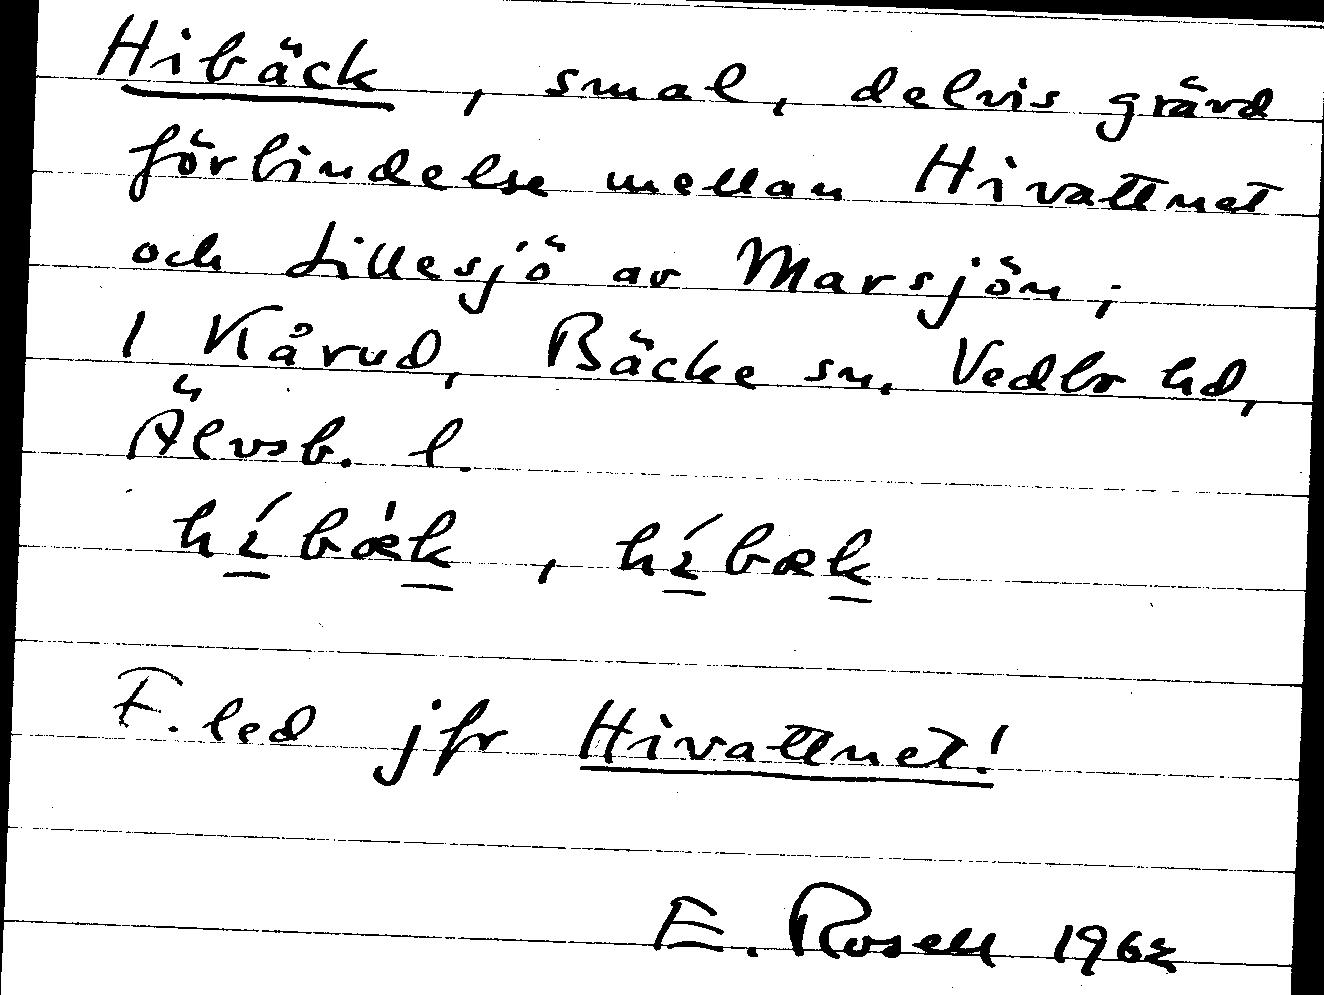 Hibäck, smal, delvis grävd
förbindelse mellan Hivattnet
och Lillesjö av Marsjön,
1 Kårud, Bäcke sn, Vedbo hd,
Älvsb. l.
híbæ̀k, híbæk
F.led jfr Hivattnet!
E. Rosell 1962